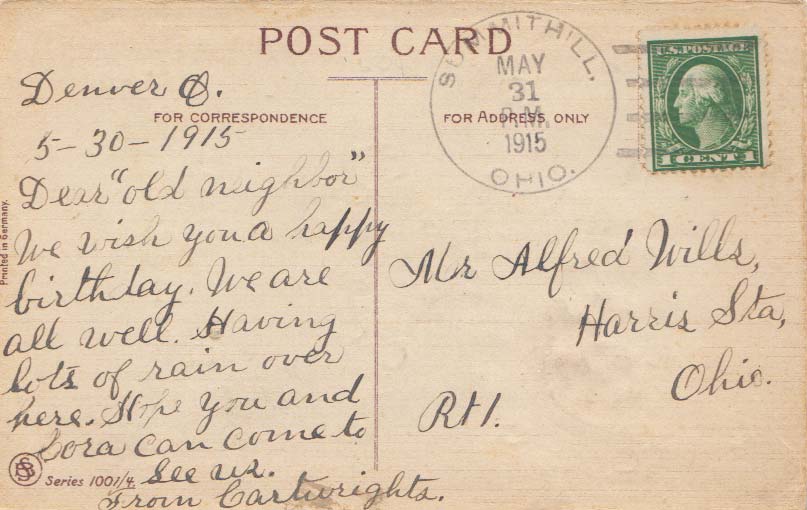 POST CARD
SUMMITHILL,
MAY
31
P.M.
1915
OHIO.
U.S. POSTAGE
1 CENT 1
FOR CORRESPONDENCE
FOR ADDRESS ONLY
Denver O.
5-30-1915
Dear "old neighbor"
We wish you a happy
birthday. We are
all well. Having
lots of rain over
here. Hope you and
Cora can come to
see us.
From Cartwrights.
Mr Alfred Wills,
Harris Sta,
Ohio.
Rt 1.
Printed in Germany.
Series 1001/4.